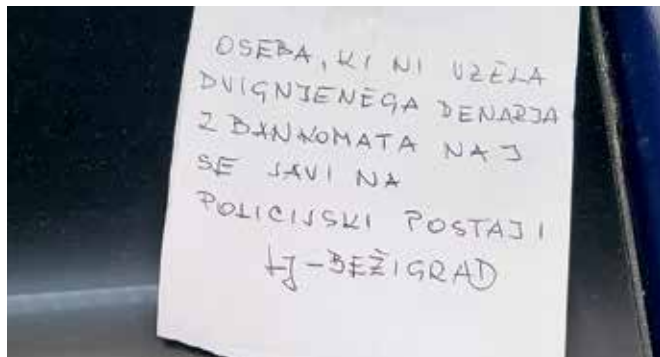 OSEBA, KI NI VZELA
DVIGNJENEGA DENARJA
Z BANKOMATA NAJ
SE JAVI NA
POLICIJSKI POSTAJI
LJ-BEŽIGRAD